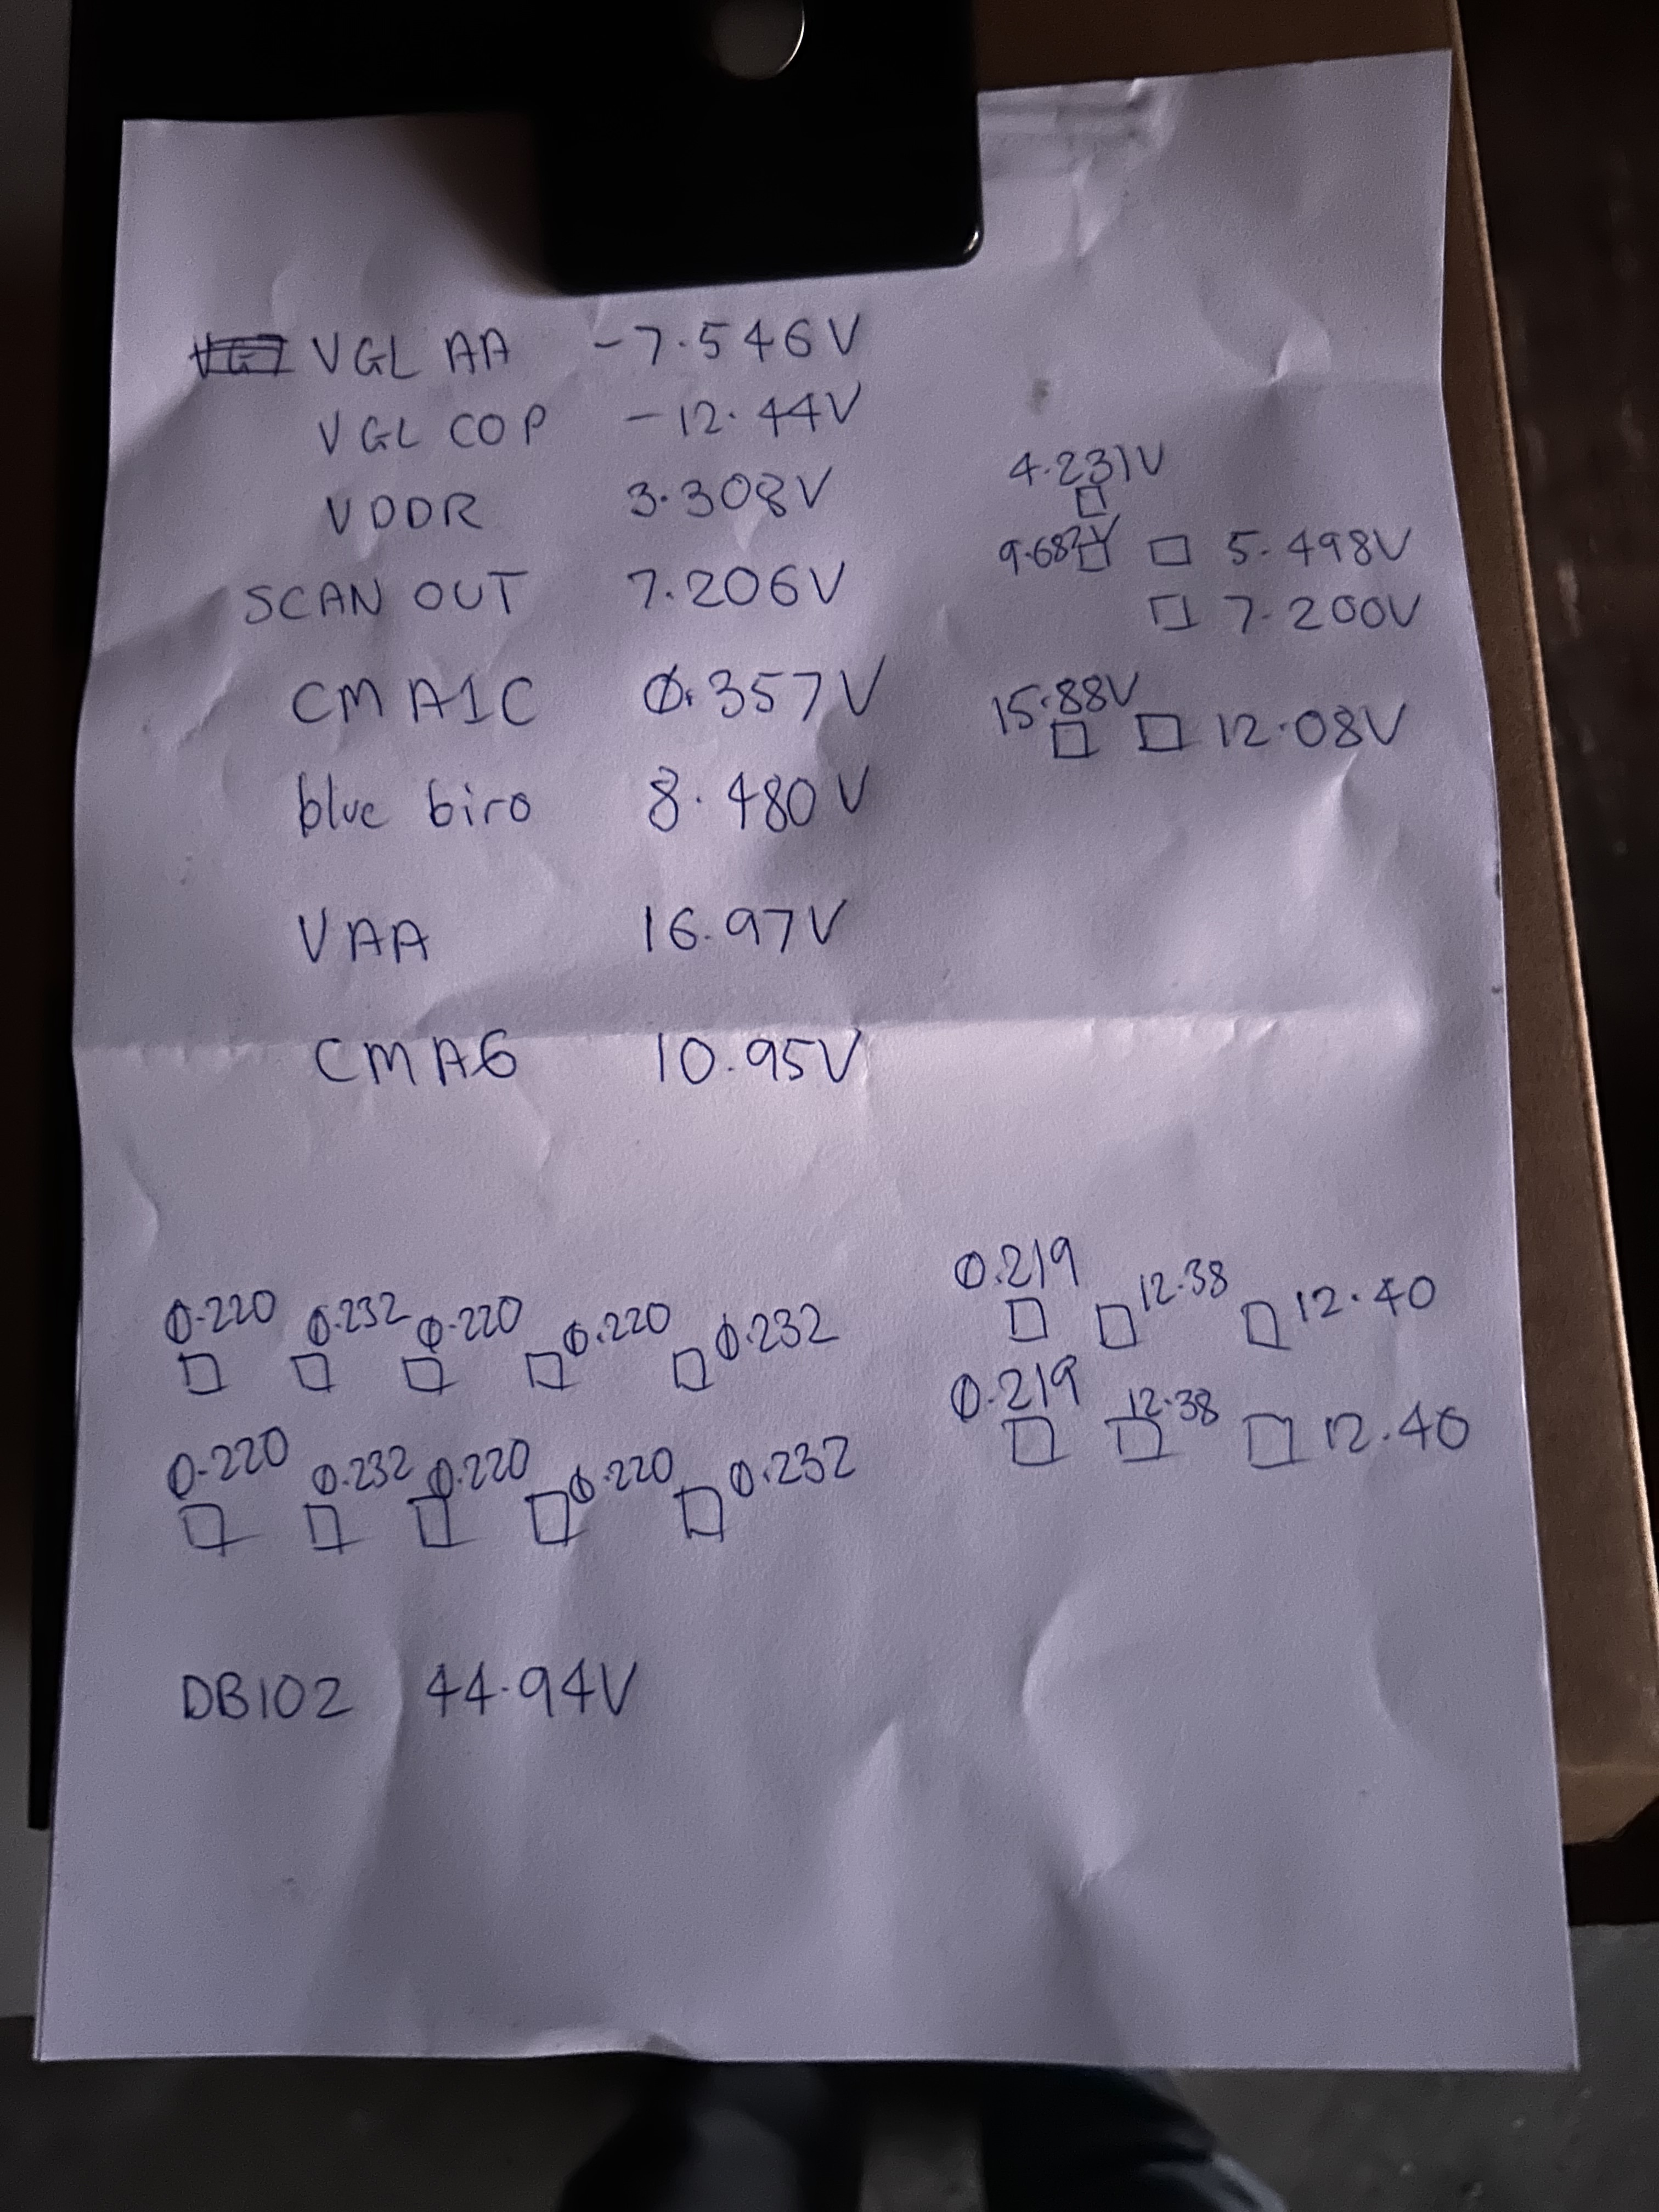 VGL AA -7.546V
VGL COP -12.44V
VDDR 3.308V
SCAN OUT 7.206V
CMA1C 0.357V
blue biro 8.480V
VAA 16.97V
CMA6 10.95V
4.231V
9.682V 5.498V
7.200V
15.88V 12.08V
0.220 0.232 0.220 0.220 0.232
0.220 0.232 0.220 0.220 0.232
0.219 12.38 12.40
0.219 12.38 12.40
DB102 44.94V